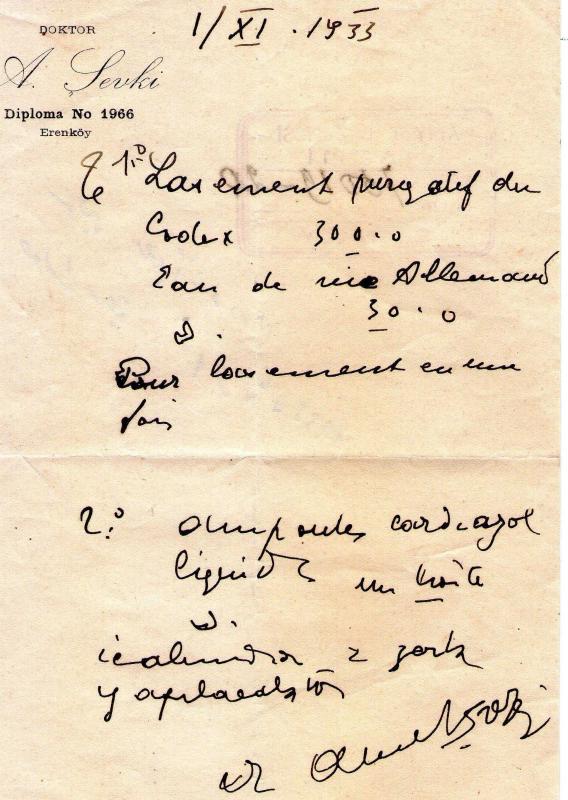 1/XI.1933
DOKTOR
A. Şevki
Diploma No 1966
Erenköy
1.º Lavement purgatif du
Codex 300.0
Eau de vie Allemand
30.0
Pour lavement en une
fois
2.º ampoules cardiazol
liquide un boîte
2
yapılacaktır
Dr